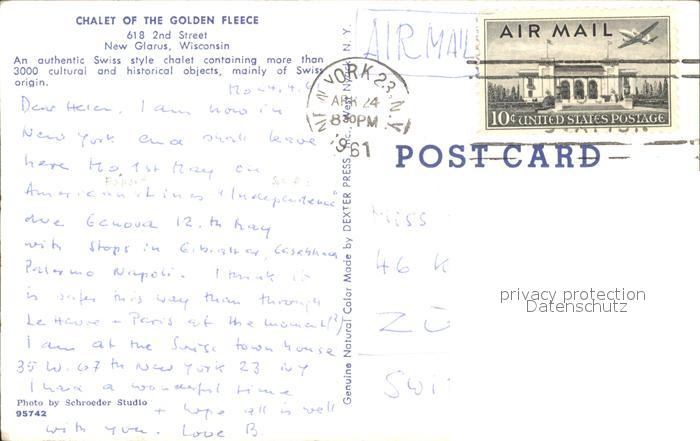 CHALET OF THE GOLDEN FLEECE
618 2nd Street
New Glarus, Wisconsin
An authentic Swiss style chalet containing more than
3000 cultural and historical objects, mainly of Swiss
origin.
Dear Helen, I am now in
New York and shall leave
here Mo. 1st May on
American Lines "Independence"
due Genova 12.th May
with stops in Gibraltar, Casablanca
Palermo Napoli. I think it
is safer this way than through
Le Havre - Paris at the moment(?)
I am at the Swiss town house
35 W. 67th New York 23 NY
I have a wonderful time
+ hope all is well
with you. Love B.
Photo by Schroeder Studio
95742
Genuine Natural Color Made by DEXTER PRESS, Inc., West Nyack, N. Y.
AIR MAIL
NEW YORK 23, N.Y.
APR 24
8 30 PM
1961
AIR MAIL
10¢ UNITED STATES POSTAGE
POST CARD
Miss
46 K
ZÜ
Swi
privacy protection
Datenschutz